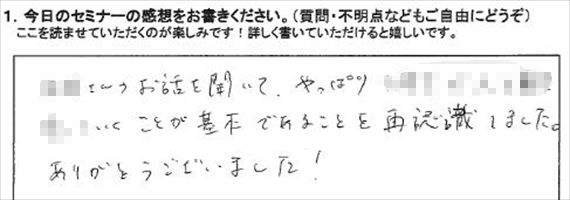 1. 今日のセミナーの感想をお書きください。(質問・不明点などもご自由にどうぞ)
ここを読ませていただくのが楽しみです！詳しく書いていただけると嬉しいです。
さんのお話を聞いて、やっぱり
いくことが基本であることを再認識しました。
ありがとうございました！